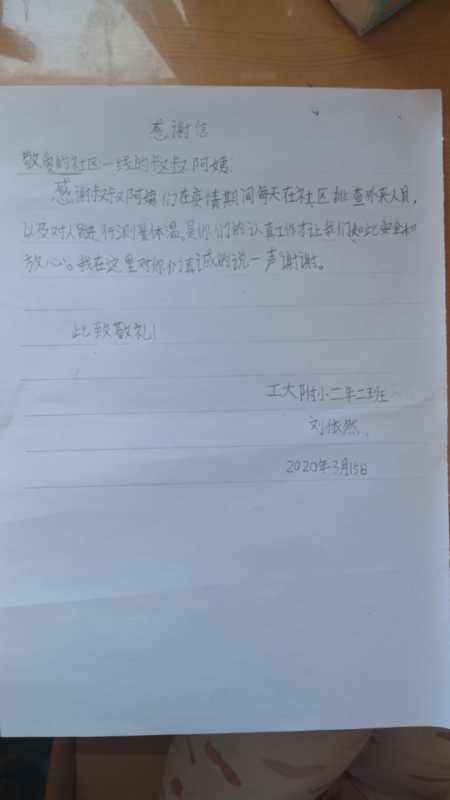 感谢信
敬爱的社区一线的叔叔阿姨:
感谢叔叔阿姨们在疫情期间每天在社区排查外来人员,
以及对人员进行测量体温。是你们的认真工作才让我们如此安全和
放心。我在这里对你们真诚的说一声谢谢。
此致敬礼!
工大附小二年二班
刘依然.
2020年3月15日